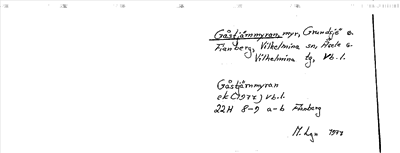 Gåstjärnmyran, myr, Grundsjö o.
Fianberg, Vilhelmina sn, Åsele s.
Vilhelmina tg, Vb. l.
Gåstjärnmyran
ek (1977) Vb. l.
22H 8-9 a-b Fianberg
1977